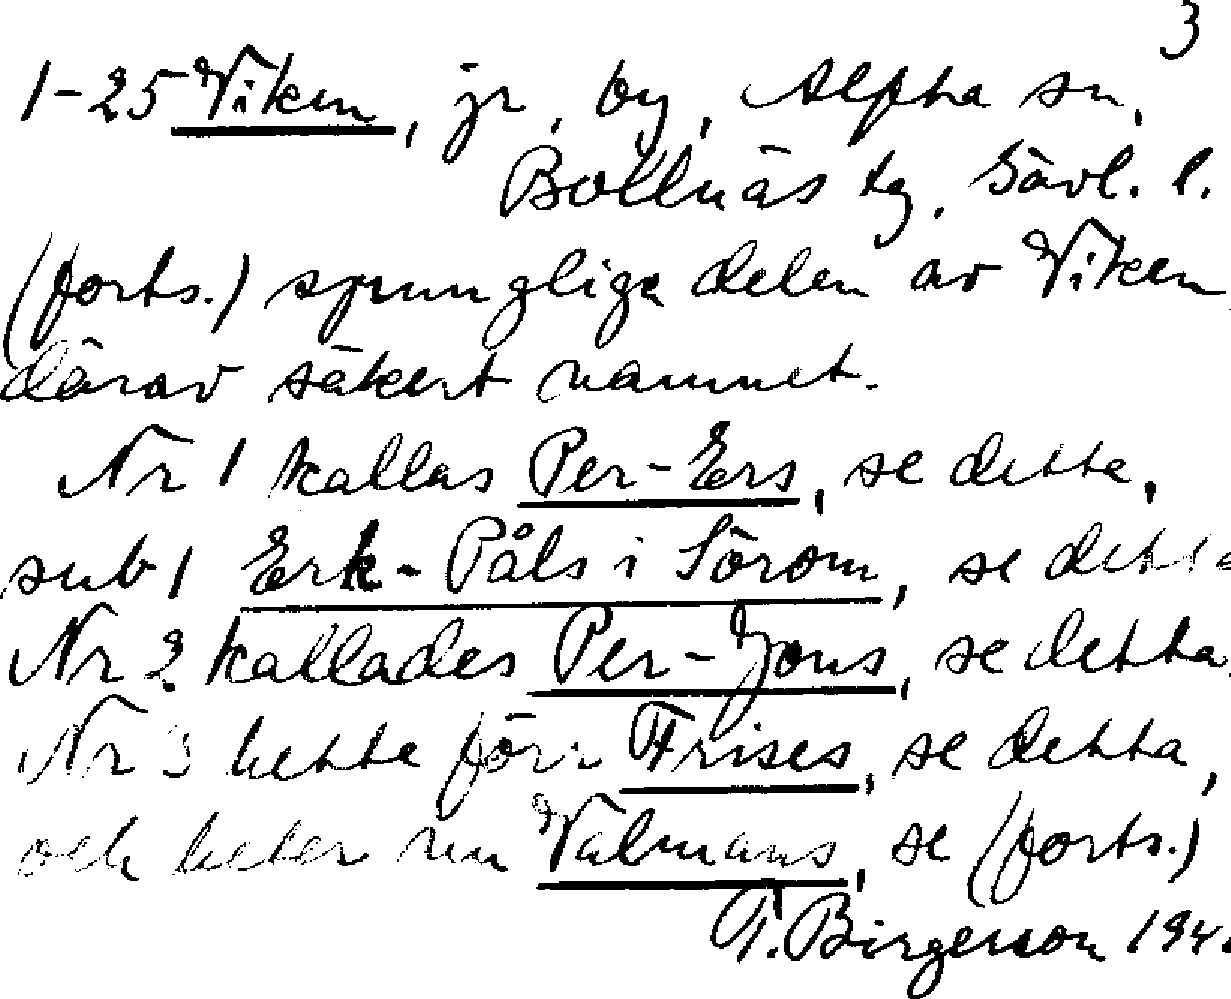 3
1-25 Viken, jr, by, Alfta sn,
Bollnäs tg, Gävl. l.
(forts.) sprungliga delen av Viken
därav säkert namnet.
Nr 1 kallas Per-Ers, se detta,
sub 1 Erk-Påls i Sörom, se detta
Nr 2 kallades Per-Jons, se detta.
Nr 3 hette förr Frises, se detta,
och heter nu Valmans, se (forts.)
T. Birgerson